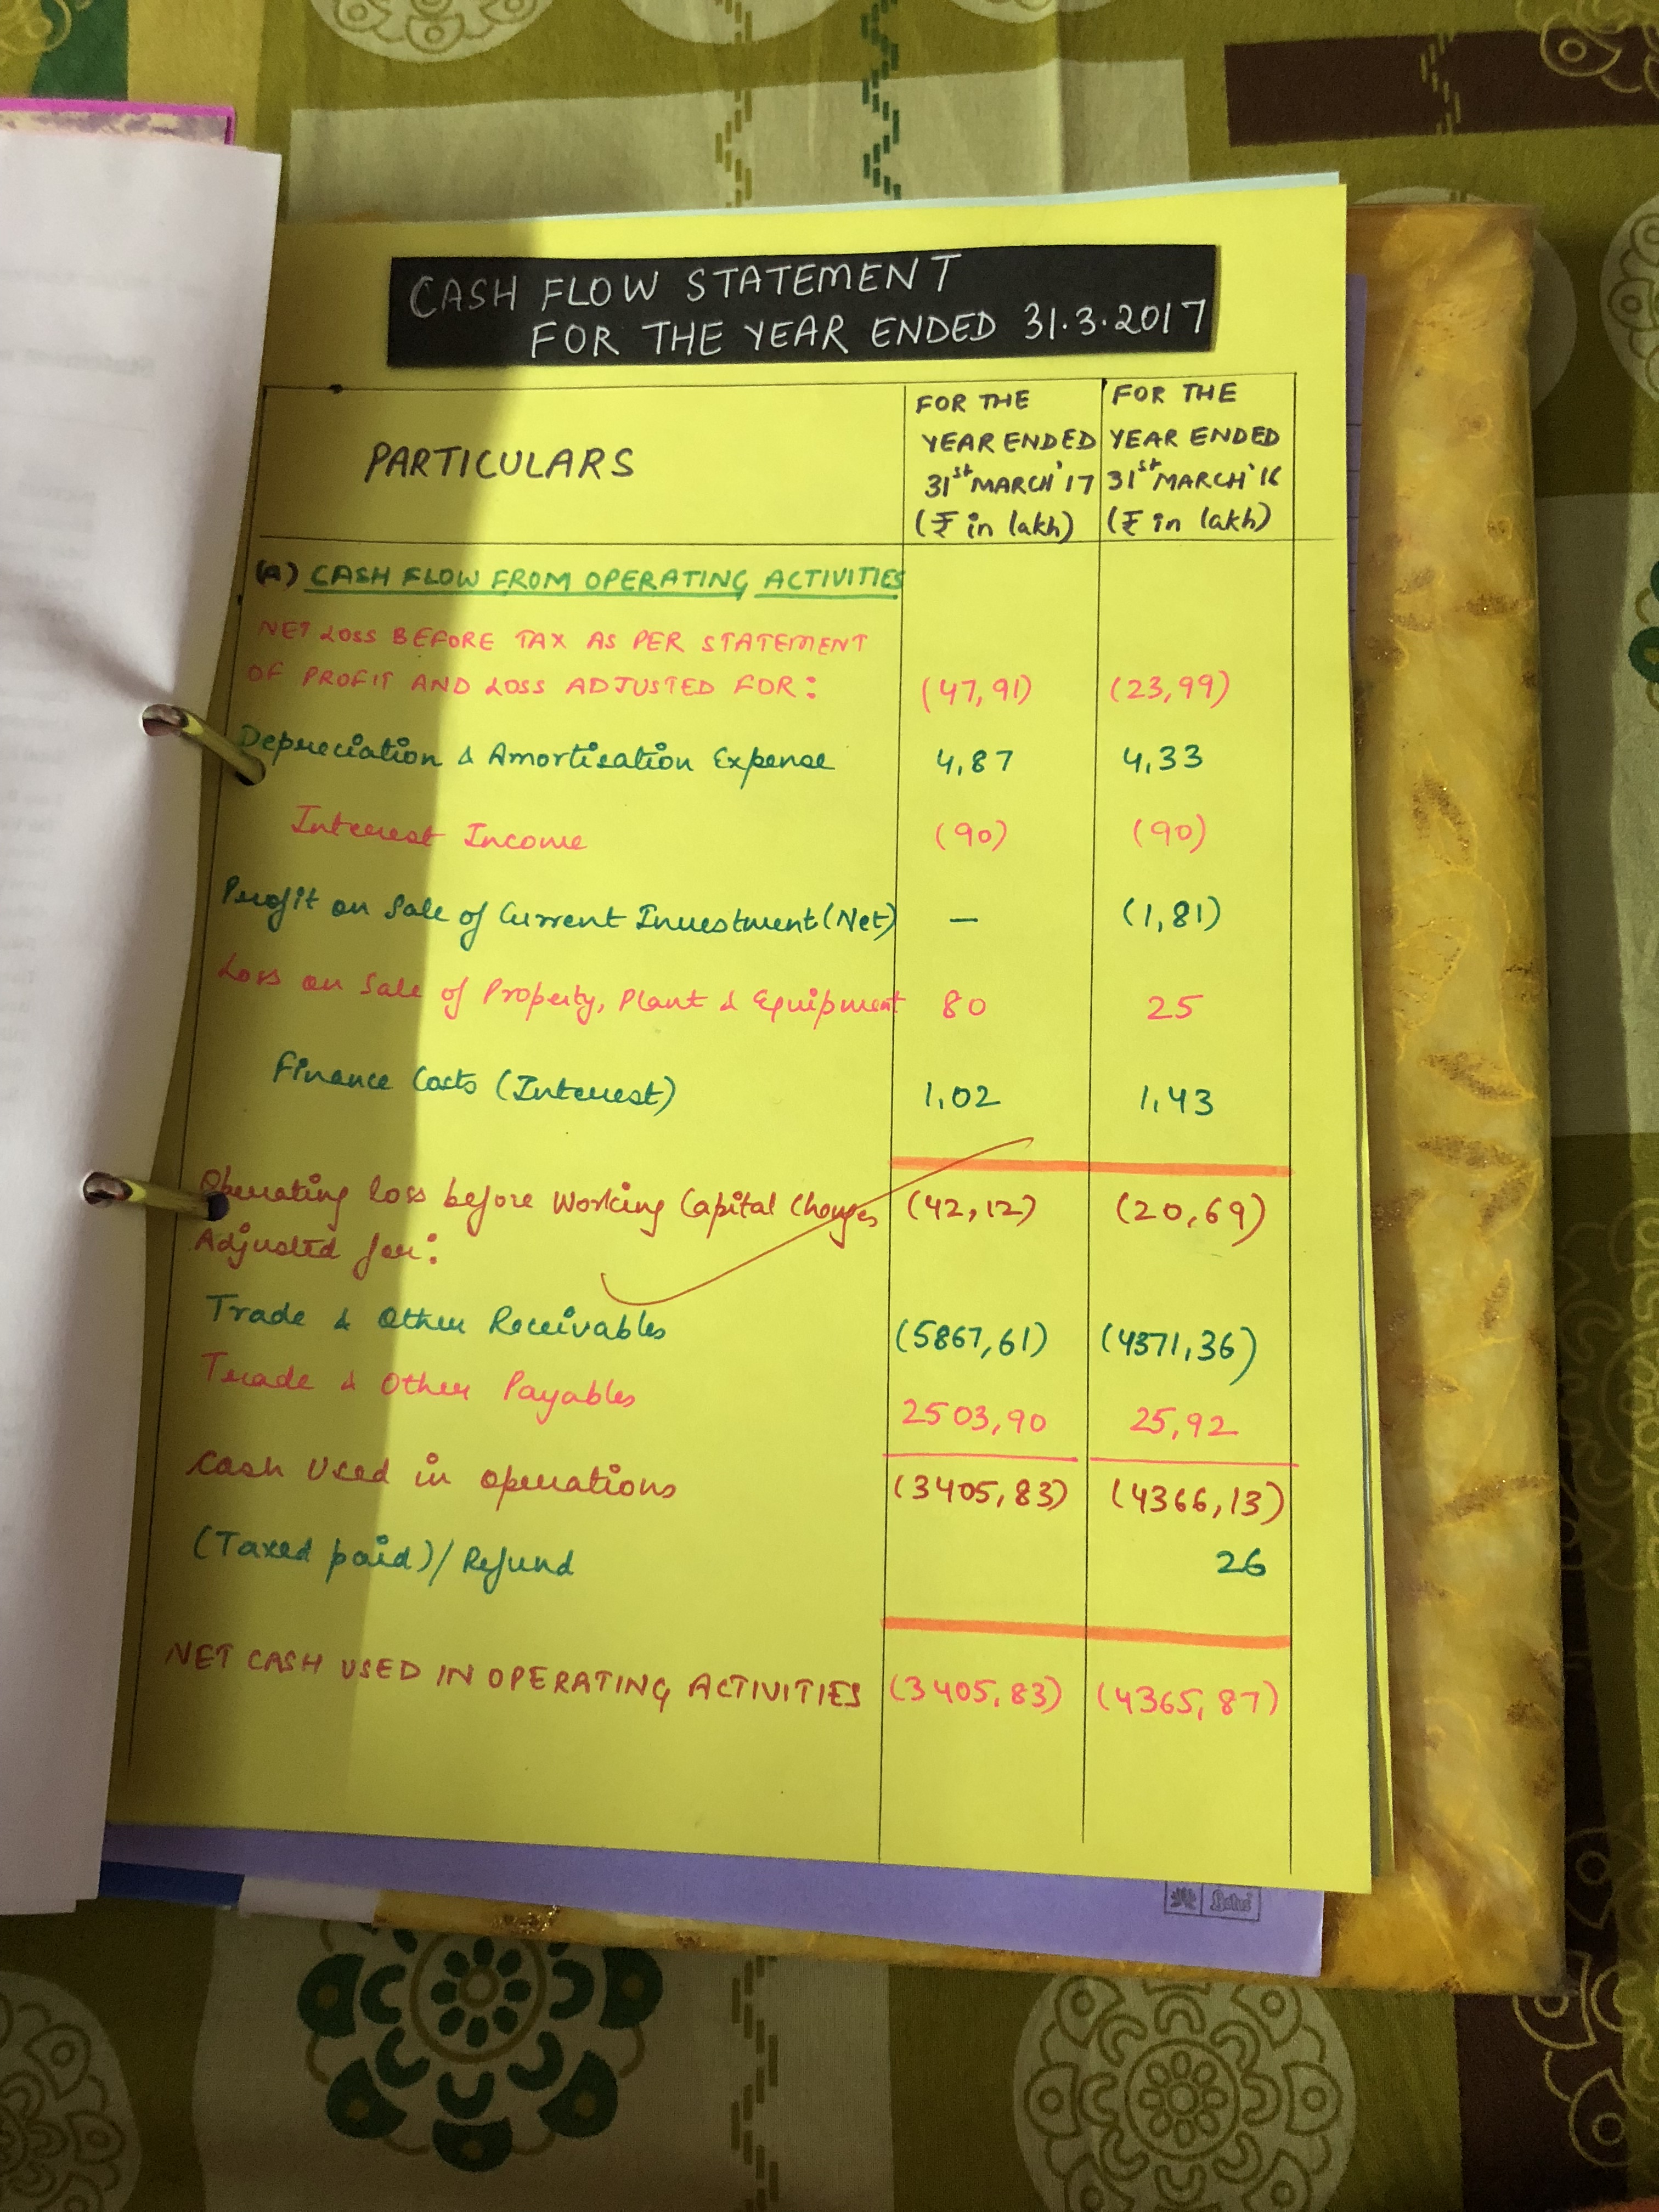 CASH FLOW STATEMENT
FOR THE YEAR ENDED 31.3.2017
PARTICULARS
FOR THE YEAR ENDED 31st MARCH'17 (₹ in lakh)
FOR THE YEAR ENDED 31st MARCH'16 (₹ in lakh)
(A) CASH FLOW FROM OPERATING ACTIVITIES
NET LOSS BEFORE TAX AS PER STATEMENT
OF PROFIT AND LOSS ADJUSTED FOR: (47,91) (23,99)
Depreciation & Amortisation Expense 4,87 4,33
Interest Income (90) (90)
Profit on Sale of Current Investment (Net) — (1,81)
Loss on Sale of Property, Plant & Equipment 80 25
Finance Costs (Interest) 1,02 1,43
Operating loss before Working Capital Changes (42,12) (20,69)
Adjusted for:
Trade & Other Receivables (5867,61) (4371,36)
Trade & Other Payables 2503,90 25,92
Cash Used in operations (3405,83) (4366,13)
(Taxed paid)/Refund 26
NET CASH USED IN OPERATING ACTIVITIES (3405,83) (4365,87)
Lotus